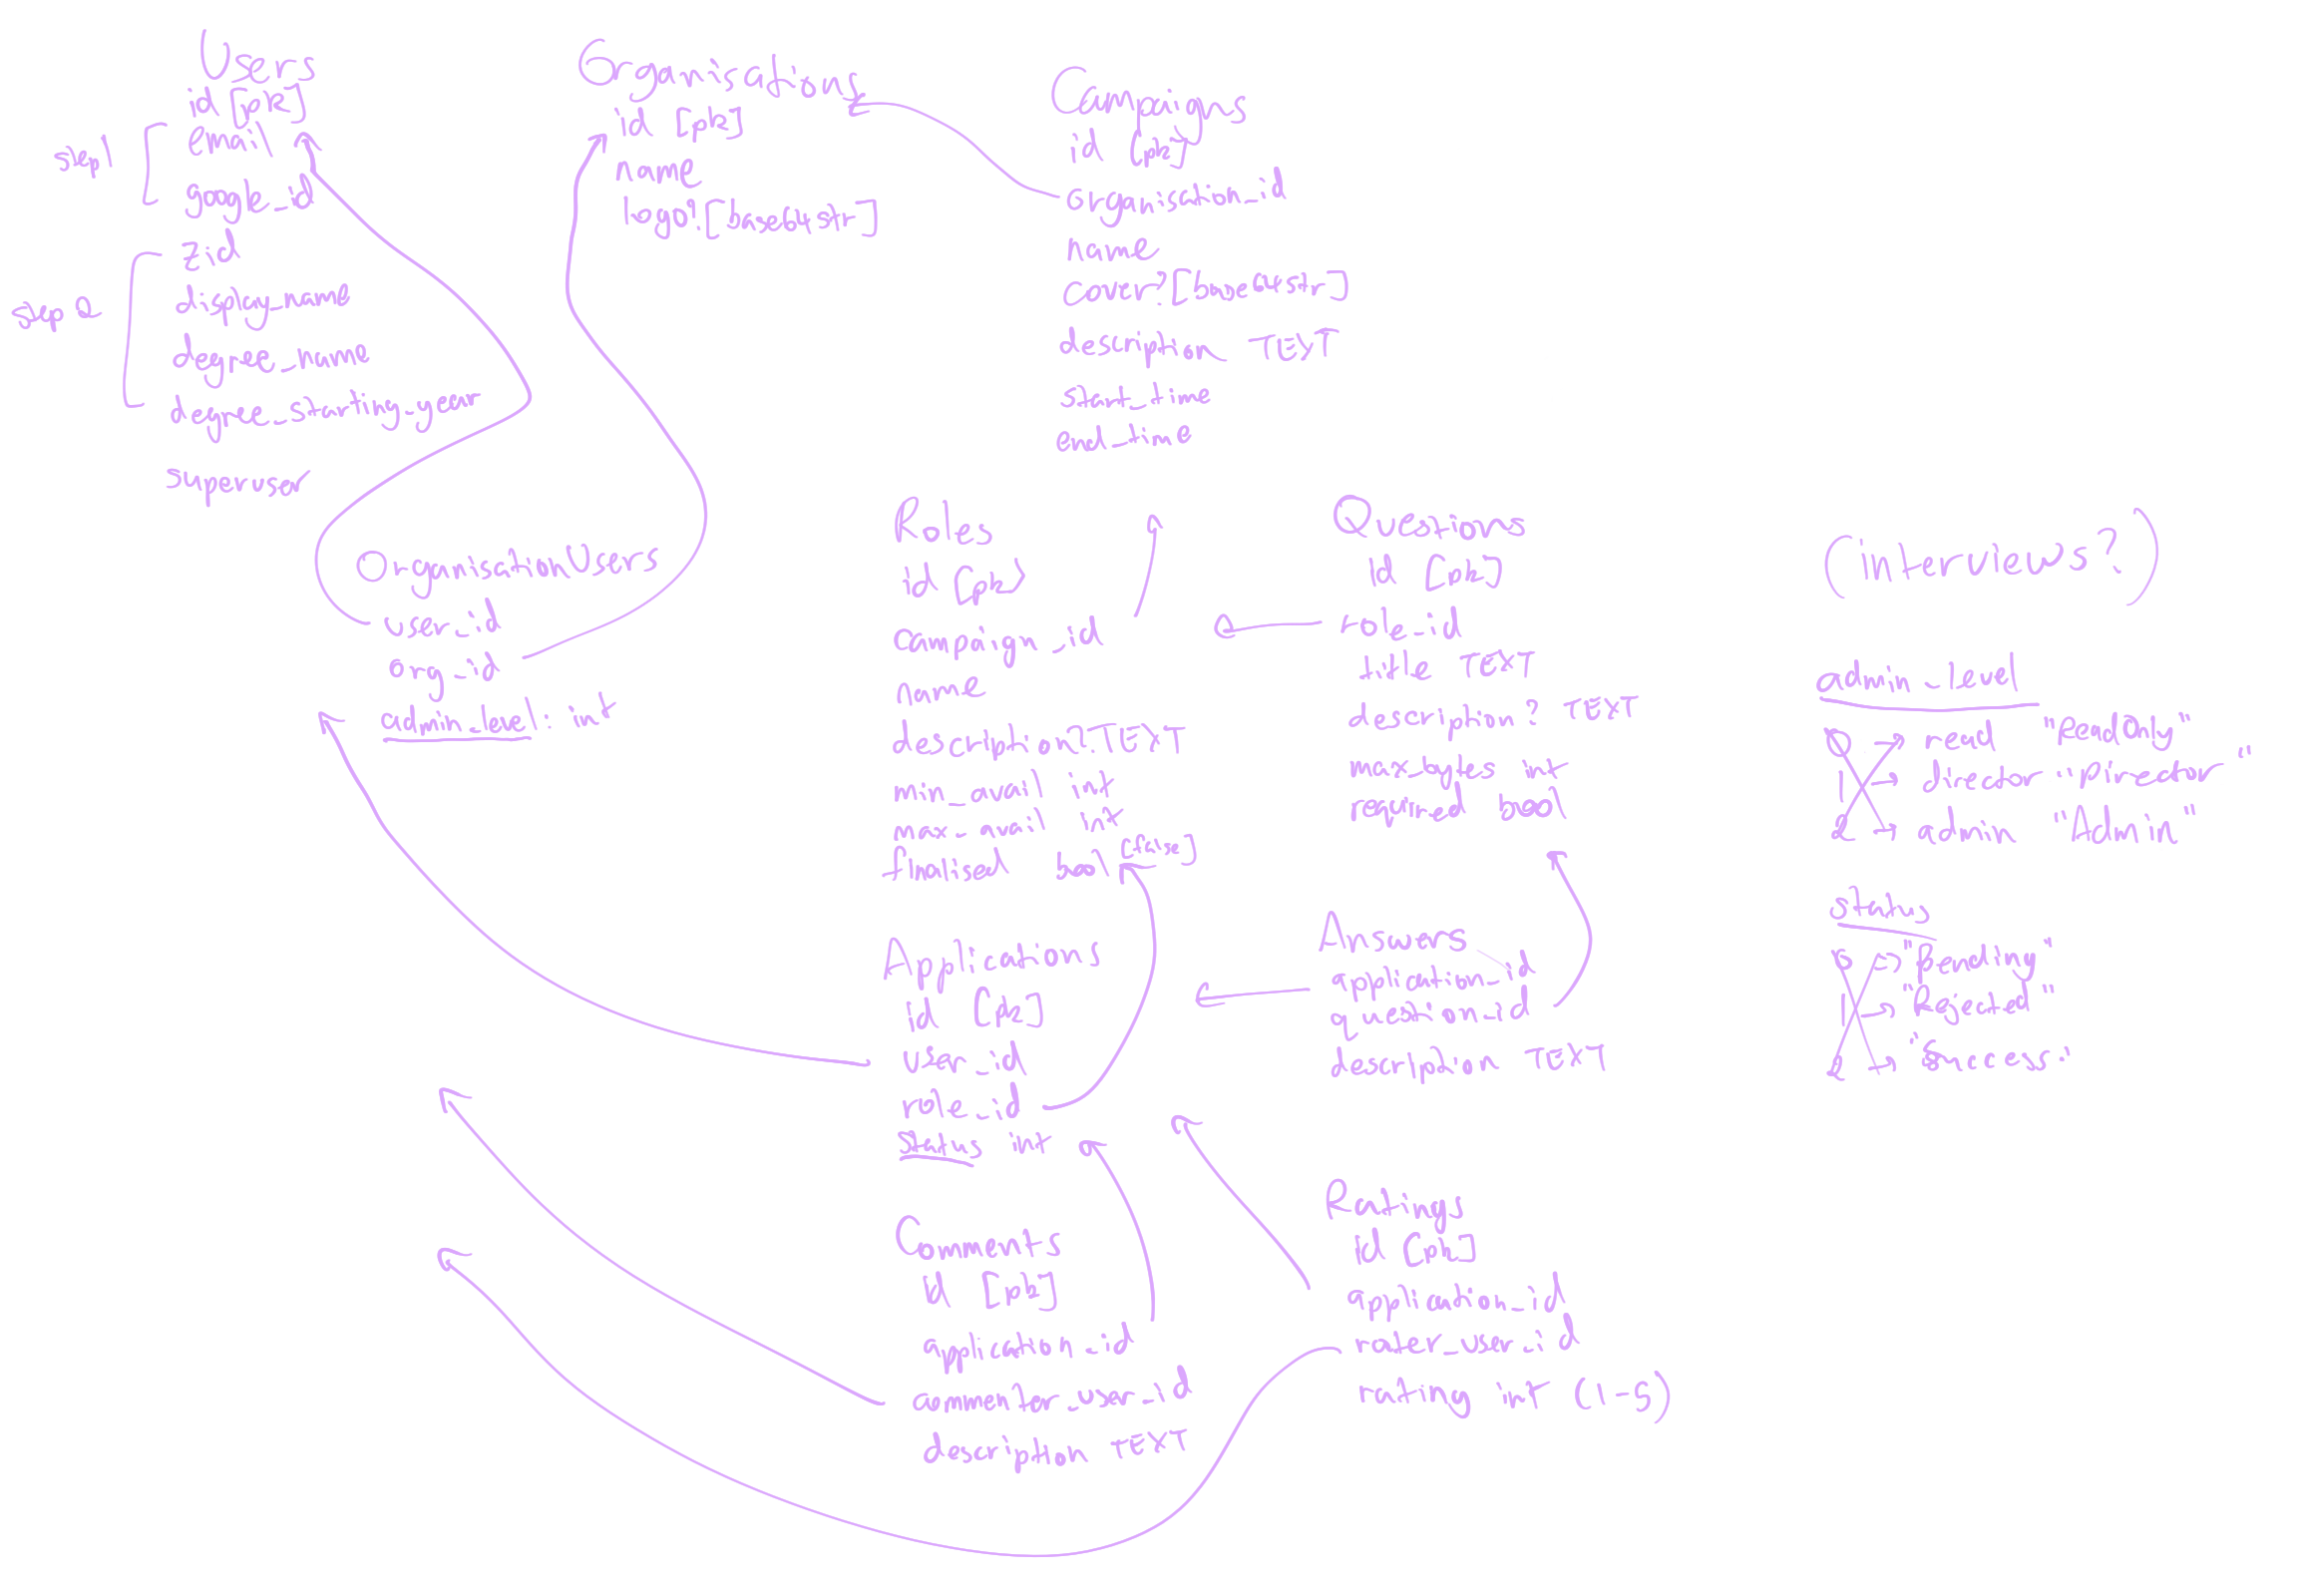 Users
id [pk]
step 1
email
google_id
step 2
zid
display_name
degree_name
degree_starting_year
superuser
Organisations
id [pk]
name
logo?[base64str]
Campaigns
id [pk]
organisation_id
name
cover?[base64str]
description TEXT
start_time
end_time
OrganisationUsers
user_id
org_id
admin_level: int
Roles
id [pk]
campaign_id
name
description?:TEXT
min_avail int
max_avail int
finalised bool [false]
Questions
id [pk]
role_id
title TEXT
description? TEXT
max_bytes int
required bool
(interviews?)
admin_level
0 → read "ReadOnly"
1 → director "Director"
2 → admin "Admin"
status
0 → "Pending"
1 → "Rejected"
2 → "Success"
Applications
id [pk]
user_id
role_id
status int
Answers
application_id
question_id
description TEXT
Comments
id [pk]
application_id
commenter_user_id
description TEXT
Ratings
id [pk]
application_id
rater_user_id
rating int (1-5)